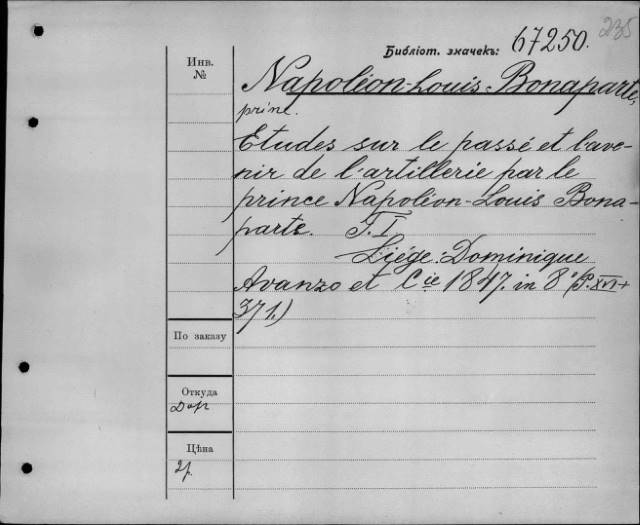 235
Библіот. значекъ: 67250.
Инв.
№
Napoléon-Louis-Bonaparte,
prine.
Etudes sur le passé et l'ave-
nir de l'artillerie par le
prince Napoléon-Louis Bona-
parte. T. I.
Liége: Dominique
Avanzo et Cie 1847. in 8° (P. XVI+
371.)
По заказу
Откуда
Дар
Цѣна
2р.